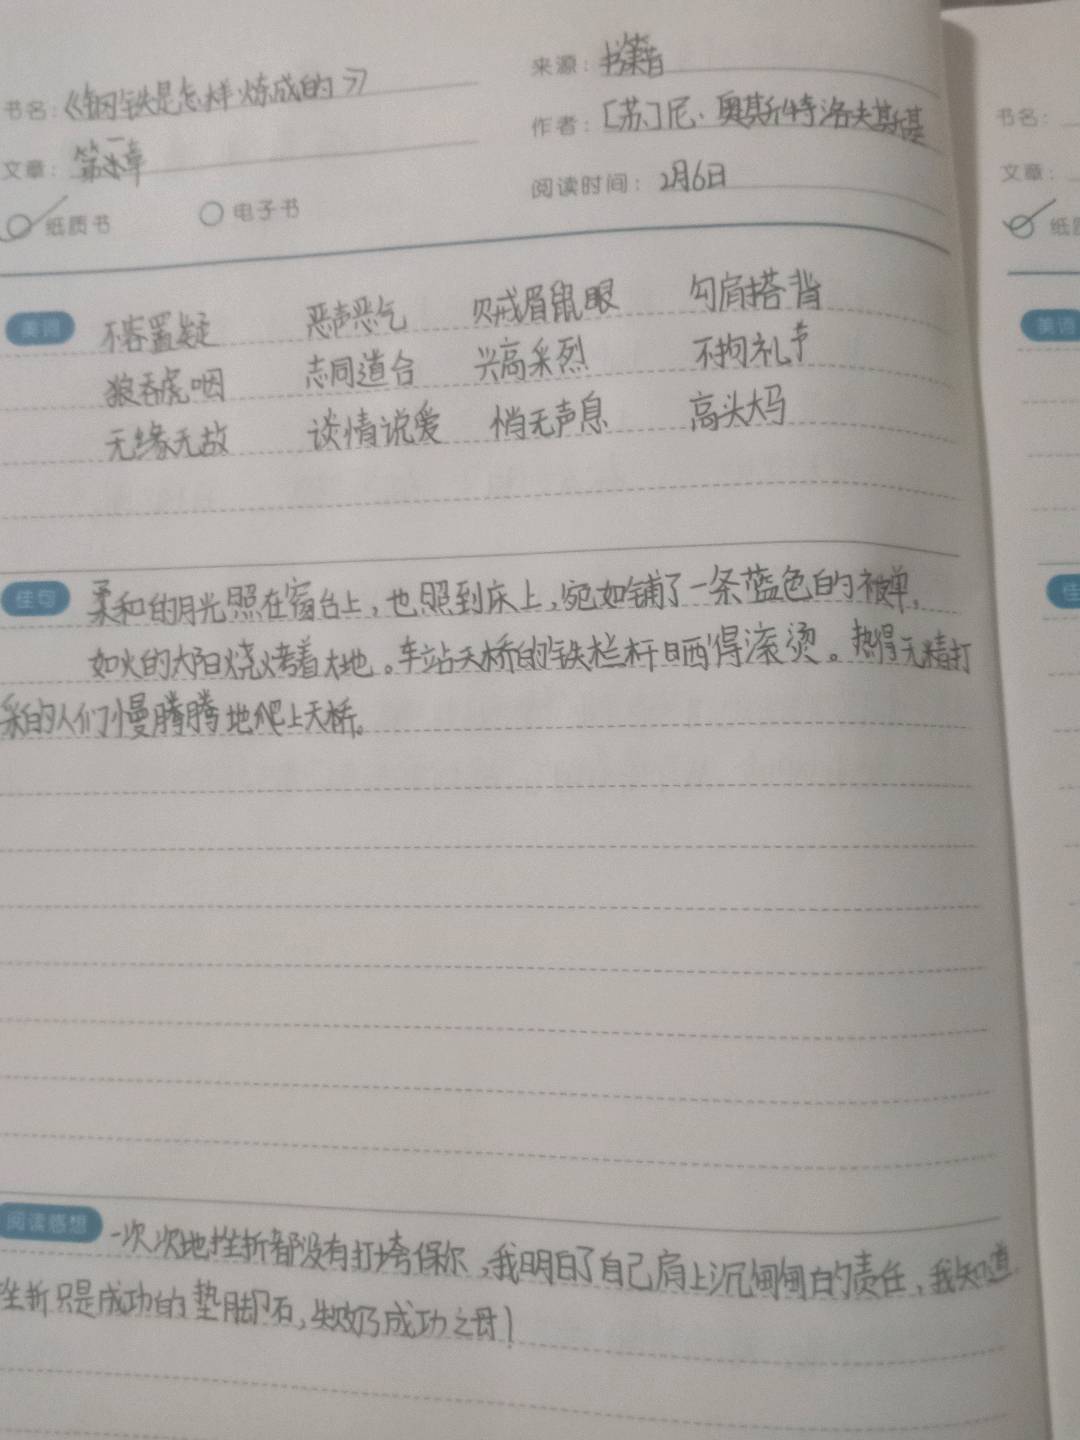 书名：《钢铁是怎样炼成的》 来源：书籍
文章：第一章 作者：[苏]尼·奥斯特洛夫斯基
纸质书 电子书 阅读时间：2月6日
美词 不容置疑 恶声恶气 贼眉鼠眼 勾肩搭背
狼吞虎咽 志同道合 兴高采烈 不拘礼节
无缘无故 谈情说爱 悄无声息 高头大马
佳句 柔和的月光照在窗台上，也照到床上，宛如铺了一条蓝色的被单，
如火的太阳烧烤着大地。车站天桥的铁栏杆晒得滚烫。热得无精打
采的人们慢腾腾地爬上天桥。
阅读感想 一次次地挫折都没有打垮保尔，我明白了自己肩上沉甸甸的责任，我知道
挫折只是成功的垫脚石，失败乃成功之母！
书名：
文章：
纸质
美词
佳